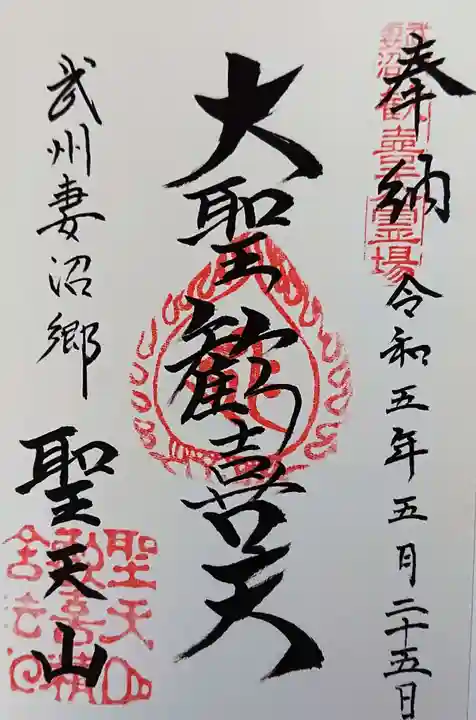 奉納 令和五年五月二十五日
武州妻沼歓喜天霊場
大聖歓喜天
武州妻沼郷
聖天山